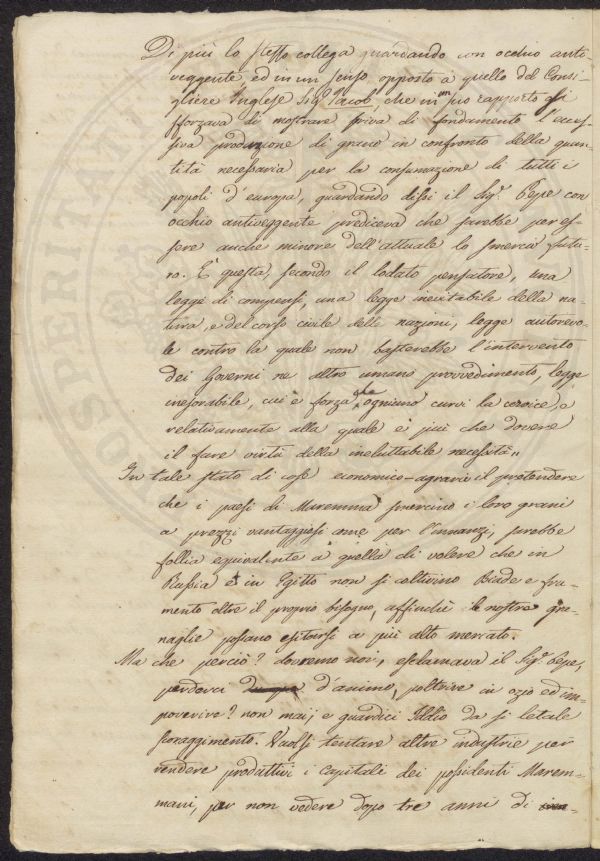 Di più lo stesso collega guardando con occhio anti-
veggente, ed in un senso opposto a quello del Consi-
gliere Inglese Sig.r Jacob, che in un suo rapporto si
sforzava di mostrare priva di fondamento l'ecces-
siva produzione di grano in confronto della quan-
tità necessaria per la consumazione di tutti i
popoli d'europa, guardando dissi il Sig.r Pepe con
occhio antiveggente prediceva che sarebbe per es-
sere anche minore dell'attuale lo smercio futu-
ro. È questa, secondo il lodato pensatore, una
legge di compensi, una legge inevitabile della na-
tura, e del corso civile delle nazioni, legge autorevo-
le contro la quale non basterebbe l'intervento
dei Governi ne altro umano provvedimento, legge
inesorabile, cui è forza che ognuno curvi la cervice, e
relativamente alla quale è più che dovere
il fare virtù della ineluttabile necessità„
In tale stato di cose economico-agrario il pretendere
che i paesi di Maremma smercino i loro grani
a prezzi vantaggiosi come per l'innanzi, sarebbe
follia equivalente a quella di volere che in
Russia et in Egitto non si coltivino Biade e fru-
mento oltre il proprio bisogno, affinchè le nostre gra-
naglie possano esitarsi a più alto mercato.
Ma che perciò? dovremo noi, esclamava il Sig.r Pepe,
perderci d'animo, poltrire in ozio ed im-
poverire? non mai; e guardici Iddio da sì letale
scoraggimento. Vuolsi tentare altre industrie per
rendere produttivi i capitali dei possidenti Marem-
mani, per non vedere dopo tre anni di
VO SPERITATI